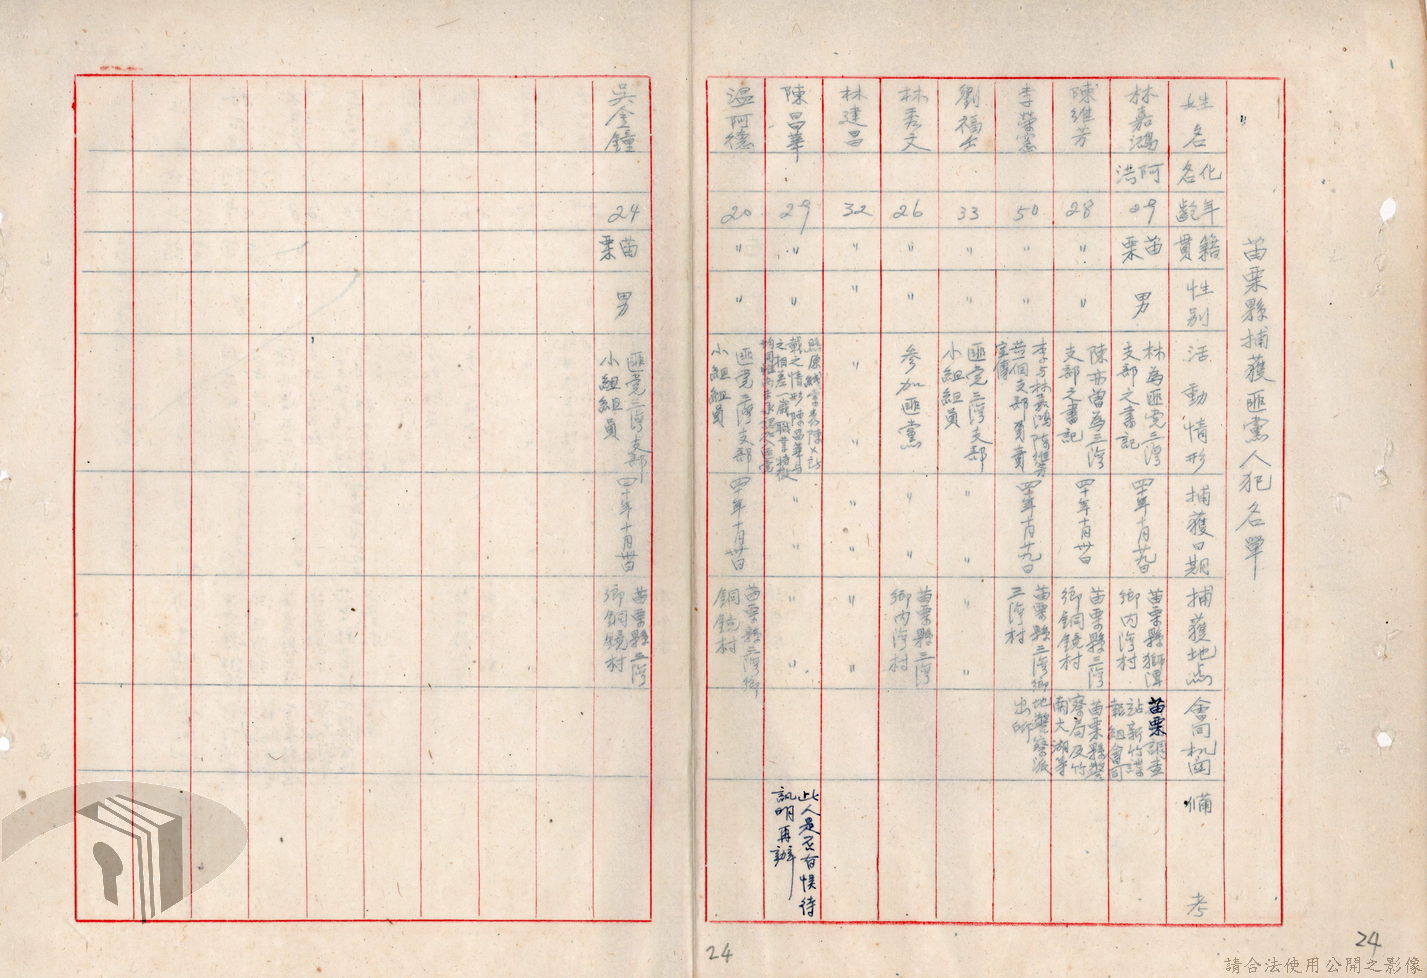 苗栗縣捕獲匪黨人犯名單
〃
姓名
化名
年齡
籍貫
性別
活動情形
捕獲日期
捕獲地点
會同机関
備考
林嘉鴻
阿洪
29
苗栗
男
林為匪党三湾
支部之書記
四十年十月廿九日
苗栗縣獅潭
鄉內湾村
苗栗調查
站新竹諜
報組會同
苗栗縣警
察局及竹
南大湖等
地警察派
出所
陳維芳
28
〃
〃
陳亦曾為三湾
支部之書記
四十年十月廿日
苗栗縣三湾
鄉銅鏡村
李榮憲
50
〃
〃
李与林嘉鴻陳維芳
兰個支部負責
宣傳
四十年十月廿九日
苗栗縣三湾鄉
三湾村
劉福
33
〃
〃
匪党三湾支部
小組組員
〃
〃
〃
林秀文
26
〃
〃
參加匪黨
〃
〃
苗栗縣三湾
鄉內湾村
林建昌
32
〃
〃
〃
〃
〃
〃
〃
〃
陳昌華
29
〃
〃
之情形陳昌華与
之相差一歲職業
〃
〃
〃
〃
此人是否有悮待
訊明再辦
温阿德
20
〃
〃
匪党三湾支部
小組組員
四十年十月廿日
苗栗縣三湾鄉
銅鏡村
吴金鐘
24
苗栗
男
匪党三湾支部
小組組員
四十年十月廿日
苗栗縣三湾
鄉銅鏡村
24
24
請合法使用公開之影像